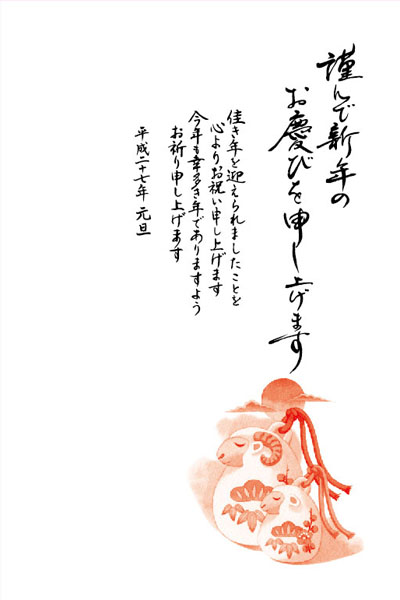 謹んで新年の
お慶びを申し上げます
佳き年を迎えられましたことを
心よりお祝い申し上げます
今年も幸多き年でありますよう
お祈り申し上げます
平成二十七年 元旦